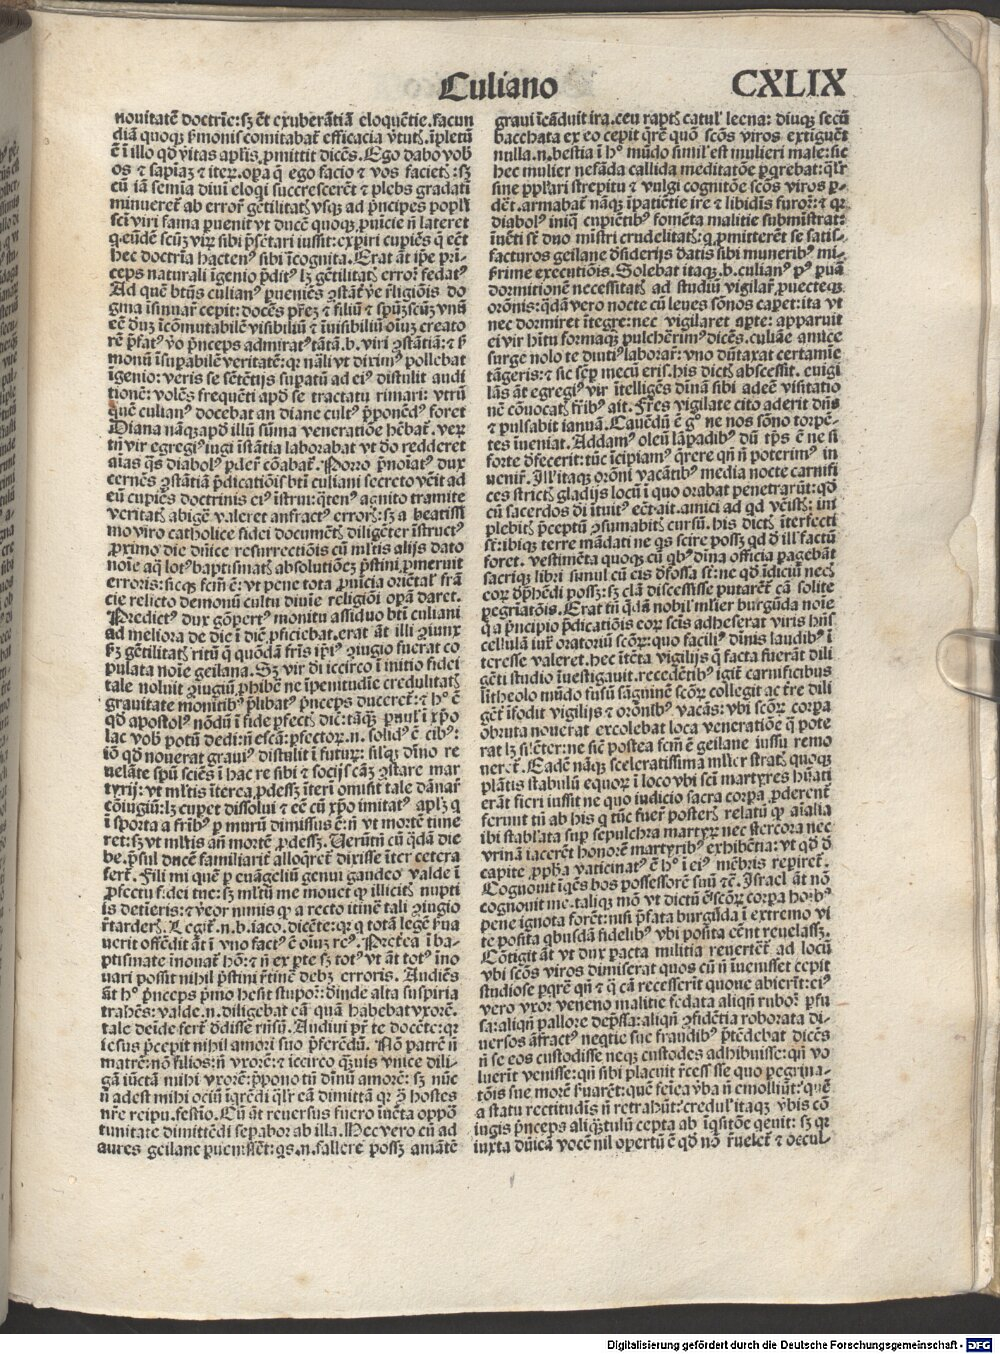 Culiano CXLIX
nouitatē doctrīe: sꝫ ēt exuberātiā eloquētie. facun
diā quoqꝫ ſ̄monis comitabat̄ efficacia v̄tutꝭ. īpletū
ē ī illo qđ v̄itas apl̄is ꝓmittit dicēs. Ego dabo vob
os ⁊ sapiaꝫ ⁊ iteꝝ. oꝑa q̄ ego facio ⁊ vos facietꝭ: sꝫ
cū iā semīa diuī eloqi succrescerēt ⁊ plebs gradatī
minueret̄ ab error̄ gētilitatꝭ vsqꝫ ad p̄ncipes popl̓i
sc̄i viri fama ꝑuenit vt ducē quoqꝫ ꝓuīcie n̄ lateret
q eūdē scūꝫ viꝝ sibi p̄sētari iussit: exꝑiri cupiēs q̄ eēt
hec doctrīa hactenꝰ sibi īcognita. Erat āt ip̄e pri-
ceps naturali īgenio p̄ditꝰ lꝫ gētilitatꝭ error̄ fedatꝰ
Ad quē bt̄us culianꝰ ꝑueniēs ꝯstāt̄ ve r̄ligiōis do
gma īsinuar̄ cepit: docēs pr̄eꝫ ⁊ filiū ⁊ spūꝫscūꝫ vnū
eē dn̄ꝫ īcōmutabilē visibiliū ⁊ īuisibiliū oīuꝫ creato
rē p̄fatꝰ v̓o p̄nceps admiratꝰ tātā .b. viri ꝯstātiā: ⁊ ſ̄
monū īsuꝑabilē veritatē: qꝛ nāli vt diximꝰ pollebat
īgenio: veris se sētētijs suꝑatū ad eiꝰ distulit audi
tionē: volēs frequēti apđ se tractatu rimari: vtrū
quē culianꝰ docebat an diane cultꝰ p̄ponēdꝰ foret
Diana nāqꝫ apđ illū sūma veneratiōe hēbat̄. veꝝ
tn̄ vir egregiꝰ iugi īstātia laborabat vt do redderet
aīas q̄s diabolꝰ ꝑder̄ cōabat̄. Porro p̄noīatꝰ dux
cernēs ꝯstātiā p̄dicatiōis bt̄i culiani secreto vēit ad
eū cupiēs doctrinis eiꝰ īstrui: q̄tenꝰ agnito tramite
veritatꝭ abigē valeret anfractꝰ errorꝭ: sꝫ a beatissī
mo viro catholice fidei documētꝭ diligēter īstructꝰ
ꝓximo die dn̄ice resurrectiōis cū ml̓tis alijs dato
noīe aq̄ lotꝰ baptismatꝭ absolutiōeꝫ p̄stini ꝓmeruit
erroris: sicqꝫ fcm̄ ē: vt pene tota ꝓuīcia oriētal̓ frā
cie relicto demonū cultu diuīe religiōi oꝑā daret.
Predictꝰ dux gōpertꝰ monitu assiduo bt̄i culiani
ad meliora de die ī diē ꝓficiebat. erat āt illi ꝯiunx
ſꝫ gētilitatꝭ ritū q̄ quōdā fr̄is ip̄iꝰ ꝯiugio fuerat co
pulata noīe geilana. Sꝫ vir di iccirco ī initio fidei
tale noluit ꝯiugiū ꝓhibē ne īpenitudīe credulitatꝭ
grauitate monitibꝰ p̄libatꝰ p̄nceps duceret̄: ⁊ hꝰ ē
qđ apostolꝰ nōdū ī fide ꝑfectꝭ dic̄: tāqꝫ ꝑuul̓ ī xp̄o
lac vob̓ potū dedi: n̄ escā: ꝑfectoꝝ .n. solidꝰ ē cibꝰ:
iō qđ nouerat grauiꝰ distulit ī futuꝝ: sil̓qꝫ dn̄o re
uelāte spū sciēs ī hac re sibi ⁊ socijs cāꝫ ꝯstare mar
tyrij: vt ml̓tis īterea ꝓdessꝫ īterī omisit tale dānar̄
cōiugiū: lꝫ cuꝑet dissolui ⁊ eē cū xp̄o imitatꝰ apl̓ꝫ q
ī sporta a fr̄ibꝰ ꝑ murū dimissus ē: n̄ vt mortē time
ret: sꝫ vt ml̓tis añ mortē ꝓdessꝫ. Veꝝtn̄ cū q̄dā die
be. p̄sul ducē familiarit̄ alloq̄ret̄ dixisse īter cetera
fert̄. Fili mi quē ꝑ euāgeliū genui gaudeo valde ī
ꝓfectu fidei tue: sꝫ ml̓tū me mouet ꝙ illicitꝭ nupti
is detīeris: ⁊ v̓eor nimis ꝙ a recto itinē tali ꝯiugio
r̄tarderꝭ. Legit̄ .n. b. iaco. dicēte: qꝛ q totā legē ſ̄ua
uerit offēdit āt ī vno factꝰ ē oīuꝫ reꝰ. Preterea ī ba-
ptismate īnouat̄ hō: ⁊ n̄ ex ꝑte sꝫ totꝰ vt āt totꝰ īno
uari possit nihil p̄stini r̄tinē debꝫ erroris. Audiēs
āt hꝰ p̄nceps p̄mo hesit stupor̄: dīnde alta suspiria
trahēs: valde .n. diligebat eā quā habebat vxorē.
tale deīde fert̄ ddisse rn̄sū. Audiui pr̄ te docēte: qꝛ
ic̄sus p̄cepit nihil amori suo p̄ferēdū. Nō patrē n̄
matrē: nō filios: n̄ vxorē: ⁊ iccirco q̄uis vnice dili-
gā iūctā mihi vxorē: p̄pono tn̄ dīnū amorē: sꝫ nūc
n̄ adest mihi ociū īqrēdi ql̓r eā dimittā qꝛ ꝯ̄ hostes
nr̄e reipu. festīo. Cū āt reuersus fuero īuēta oppō
tunitate dimittēdi seꝑabor ab illa. Hec vero cū ad
aures geilane ꝑuenissēt: qs .n. fallere possꝫ amātē
graui īcāduit ira. ceu raptꝭ catul̓ leena: diuqꝫ secū
bacchata ex eo cepit q̄rē quō scōs viros extiguēt
nulla .n. bestia ī hꝰ mūdo simil̓ est mulieri male: sic
hec mulier nefāda callida meditatōe ꝑqrebat: ql̓r
sine ppl̓ari strepitu ⁊ vulgi cognitōe scōs viros ꝑ-
dēt. armabat̄ nāqꝫ īpatiētie ire ⁊ libidīs furor̄: ⁊ qꝛ
diabolꝰ iniq̄ cupiētibꝰ fomēta malitie submīstrat:
īuēti st̄ duo mīstri crudelitatꝭ: q ꝓmitterēt se satis-
facturos geilane dsiderijs datis sibi muneribꝰ mi-
ſrime executiōis. Solebat itaqꝫ .b. culianꝰ pꝰ ꝑuā
dormitionē necessitatꝭ ad studiū vigilar̄ ꝓuectꝰ eqꝫ
orōnis: q̄dā vero nocte cū leues sōnos caꝑet: ita vt
nec dormiret ītegre: nec vigilaret apte: apparuit
ei vir hītu formaqꝫ pulcherimꝰ dicēs. culiāe amice
surge nolo te diutiꝰ laborar̄: vno dūtaxat certamīe
tāgeris: ⁊ sic sēꝑ mecū eris. his dictꝭ abscessit. euigi
lās āt egregiꝰ vir ītelligēs dīnā sibi adeē visitatio
nē cōuocatꝭ fr̄ibꝰ ait. Fr̄es vigilate cito aderit dn̄s
⁊ pulsabit ianuā. Cauēdū ē gꝰ ne nos sōno torpē-
tes īueniat. Addamꝰ oleū lāpadibꝰ dū tp̄s ē ne si
forte dfecerit: tūc īcipiamꝰ q̄rere qn̄ n̄ poterimꝰ in
uenir̄. Ill̓ itaqꝫ orōni vacātibꝰ media nocte carnifi
ces strictꝭ gladijs locū ī quo orabat penetrarūt: qđ
cū sacerdos di ītuitꝰ eēt ait. amici ad qđ vēistꝭ: im
plebitꝭ p̄ceptū ꝯsumabitꝭ cursū. his dictꝭ īterfecti
st̄: ibiqꝫ terre mādati ne qs scire possꝫ qđ d ill̓ factū
foret. vestimēta quoqꝫ cū qbꝰ dīna officia pagebāt
sacriqꝫ libri simul cū eis dfossa st̄: ne qđ īdiciū necꝭ
coꝝ dp̄hēdi possꝫ: sꝫ clā discessisse putarēt cā solite
pegriatōis. Erat tn̄ q̄dā nobil̓ ml̓ier burgūda noīe
q̄ a p̄ncipio p̄dicatiōis eoꝝ scīs adheserat viris hn̄s
cellulā iux̄ oratoriū scōꝝ: quo faciliꝰ dīnis laudibꝰ ī
teresse valeret. hec ītēta vigilijs q̄ facta fuerāt dili
gēti studio īuestigauit. recedētibꝰ igit̄ carnificibus
līteolo mūdo fusū sāguinē scōꝝ collegit ac tr̄e dili
gēt̄ īfodit vigilijs ⁊ orōnibꝰ vacās: vbi scōꝝ corꝑa
obruta nouerat excolebat loca veneratiōe q̄ pote
rat lꝫ sil̓ēter: ne sic̄ postea fcm̄ ē geilane iussu remo
ueret̄. Eadē nāqꝫ sceleratissima ml̓ier stratꝭ quoqꝫ
plātis stabulū equoꝝ ī loco vbi sci martyres hūati
erāt fieri iussit ne quo iudicio sacra corꝑa ꝓderent̄
ferunt tn̄ ab his q tūc fuer̄ posterꝭ relatū ꝙ aīalia
ibi stabl̓ata suꝑ sepulchra martyꝝ nec stercora nec
vrinā iacerēt honorē martyribꝰ exhibētia: vt qđ d
capite ꝓph̄a vaticinatꝰ ē hꝰ ī eiꝰ mēbris reꝑiret̄.
Cognouit īqēs bos possessorē suū ⁊c̄. Israel āt nō
cognouit me. taliqꝫ mō vt dictū ē scōꝝ corꝑa hoībꝰ
pene ignota forēt: nisi p̄fata burgūda ī extremo vi
te posita qbusdā fidelibꝰ vbi posita eēnt reuelassꝫ.
Cōtigit āt vt dux pacta militia reuertēt̄ ad locū
vbi scōs viros dimiserat quos cū n̄ īuenisset cepit
studiose ꝑqrē qn̄ ⁊ q̄ cā recesserit quoue abierīt: eiꝰ
vero vxor veneno malitie fedata aliqn̄ rubor̄ ꝑfu
sa: aliqn̄ pallore dep̄ssa: aliqn̄ ꝯfidētia roborata di-
uersos āfractꝰ neqtie sue fraudibꝰ p̄tēdebat dicēs
n̄ se eos custodisse neqꝫ custodes adhibuisse: qn̄ vo
luerīt venisse: qn̄ sibi placuit r̄cessisse quo pegrina-
tōis sue morē ſ̄uarēt: quē feīea v̓ba n̄ emolliūt: quē
a statu rectitudīs n̄ retrahūt: credul̓ itaqꝫ v̓bis cō
iugis p̄nceps aliqꝫtulū cepta ab īqsitōe qeuit: sꝫ qꝛ
iuxta dn̄icā vocē nil oꝑertū ē qđ nō r̄uelet̄ ⁊ occul-
Digitalisierung gefördert durch die Deutsche Forschungsgemeinschaft - DFG